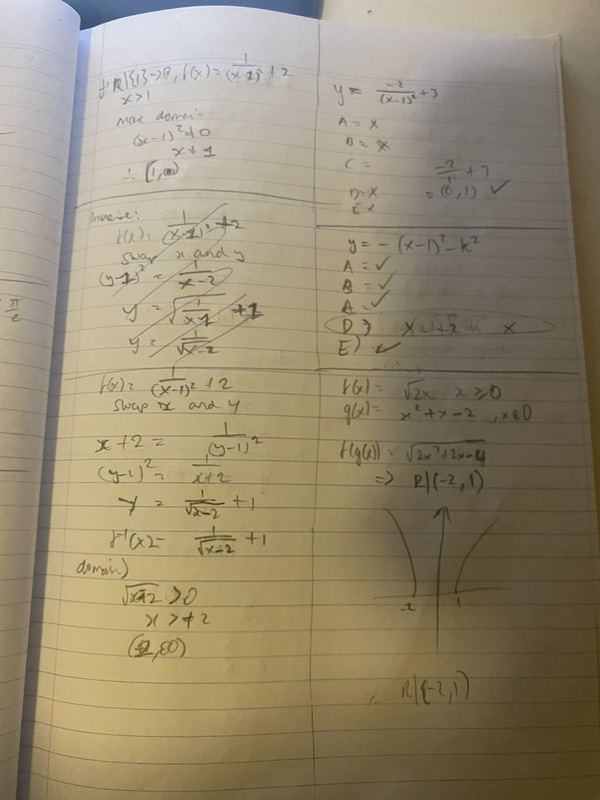 f: R\{1} → R, f(x) = 1/(x-1)² + 2
x>1
max domain
(x-1)² ≠ 0
x ≠ 1
∴ (1, ∞)
Inverse:
f(x) = 1/(x-1)² + 2
swap x and y
(y-1)² = 1/(x-2)
y = √(1/(x-1)) + 1
y = 1/√(x-2)
f(x) = 1/(x-1)² + 2
swap x and y
x+2 = 1/(y-1)²
(y-1)² = 1/(x+2)
y = 1/√(x-2) + 1
f⁻¹(x) = 1/√(x-2) + 1
domain)
√(x-2) > 0
x > 2
(2, ∞)
y = -2/(x-1)² + 3
A = x
B = x
C =
-2/1 + 3
D = x
= (0, 1) ✓
E x
y = -(x-1)² - k²
A = ✓
B = ✓
A = ✓
D) x
E) ✓
f(x) = √2x x ≥ 0
g(x) = x² + x - 2, x ∈ D
f(g(x)) = √(2x² + 2x - 4)
=> R\(-2, 1)
1
∴ R\(-2, 1)
π/2